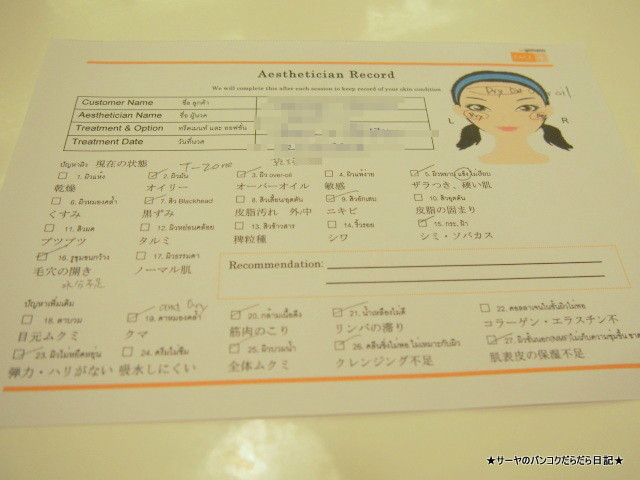 Aesthetician Record
We will complete this after each session to keep record of your skin condition
Customer Name ชื่อ ลูกค้า
Aesthetician Name ชื่อ ผู้นวด
Treatment & Option ทรีตเมนท์ และ ออฟชั่น
Treatment Date วันที่นวด
Dry
oil
L R
ปัญหาผิว 現在の状態 T-zone
1. ผิวแห้ง 2. ผิวมัน 3. ผิว over-oil 4. ผิวแพ้ง่าย 5. ผิวหยาบ แข็ง ไม่เรียบ
乾燥 オイリー オーバーオイル 敏感 ザラつき、硬い肌
6. ผิวหมองคล้ำ 7. สิว Blackhead 8. สิวเสี้ยน/อุดตัน 9. สิวอักเสบ 10. สิวอุดตัน
くすみ 黒ずみ 皮脂汚れ 外/中 ニキビ 皮脂の固まり
11. สิวผด 12. ผิวหย่อนคล้อย 13. สิวข้าวสาร 14. ริ้วรอย 15. กระ ฝ้า
ブツブツ タルミ 稗粒種 シワ シミ・ソバカス
16. รูขุมขนกว้าง 17. ผิวธรรมดา
毛穴の開き ノーマル肌
水分不足
Recommendation:
ปัญหาเพิ่มเติม
18. ตาบวม 19. ตาหมองคล้ำ 20. กล้ามเนื้อตึง 21. น้ำเหลืองไม่ดี 22. คอลลาเจนในชั้นผิวไม่พอ
目元ムクミ クマ 筋肉のこり リンパの滞り コラーゲン・エラスチン不
23. ผิวไม่ยืดหยุ่น 24. ครีมไม่ซึม 25. ผิวบวมน้ำ 26. คลีนซิ่งไม่พอ ไม่เหมาะกับผิว
弾力・ハリがない 吸水しにくい 全体ムクミ クレンジング不足 肌表皮の保湿不足
★サーヤのバンコクだらだら日記★